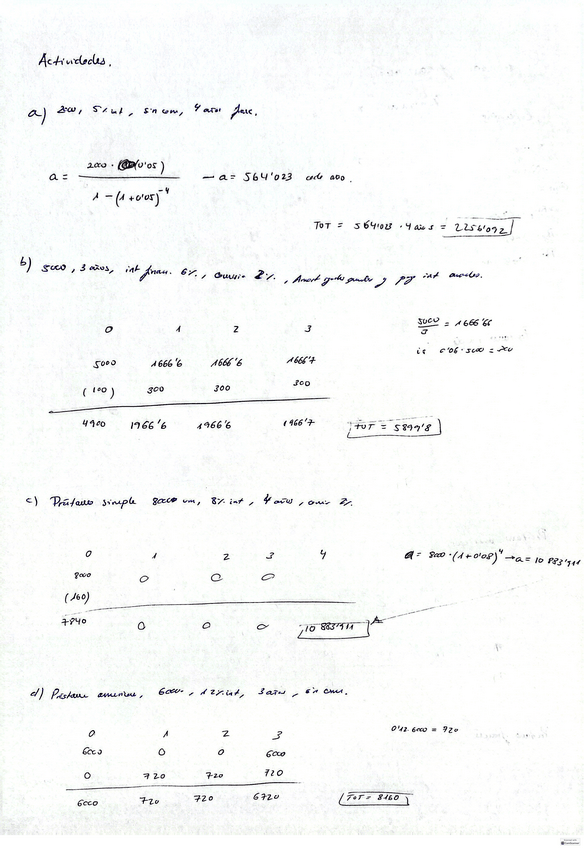 Actividades.
a) 2000, 5% int, sin com, 4 años franc.
a = 2000 · (0'05) / 1 - (1+0'05)^-4 → a = 564'023 cada año.
TOT = 564'023 · 4 años = 2256'092
b) 5000, 3 años, int 6%, comisio 2%, Amort y pag int anuales.
0 1 2 3
5000/3 = 1666'66
5000 1666'6 1666'6 1666'7
0'06 · 5000 = 300
(100) 300 300 300
4900 1966'6 1966'6 1966'7
TOT = 5899'8
c) Préstamo simple 8000 um, 8% int, 4 años, comis 2%.
0 1 2 3 4
= 8000 · (1+0'08)^4 → a = 10 883'911
8000 0 0 0
(160)
7840 0 0 0 10 883'911
d) Préstamo americano, 6000, 12% int, 3 años, sin com.
0 1 2 3
0'12 · 6000 = 720
6000 0 0 6000
0 720 720 720
6000 720 720 6720
TOT = 8160